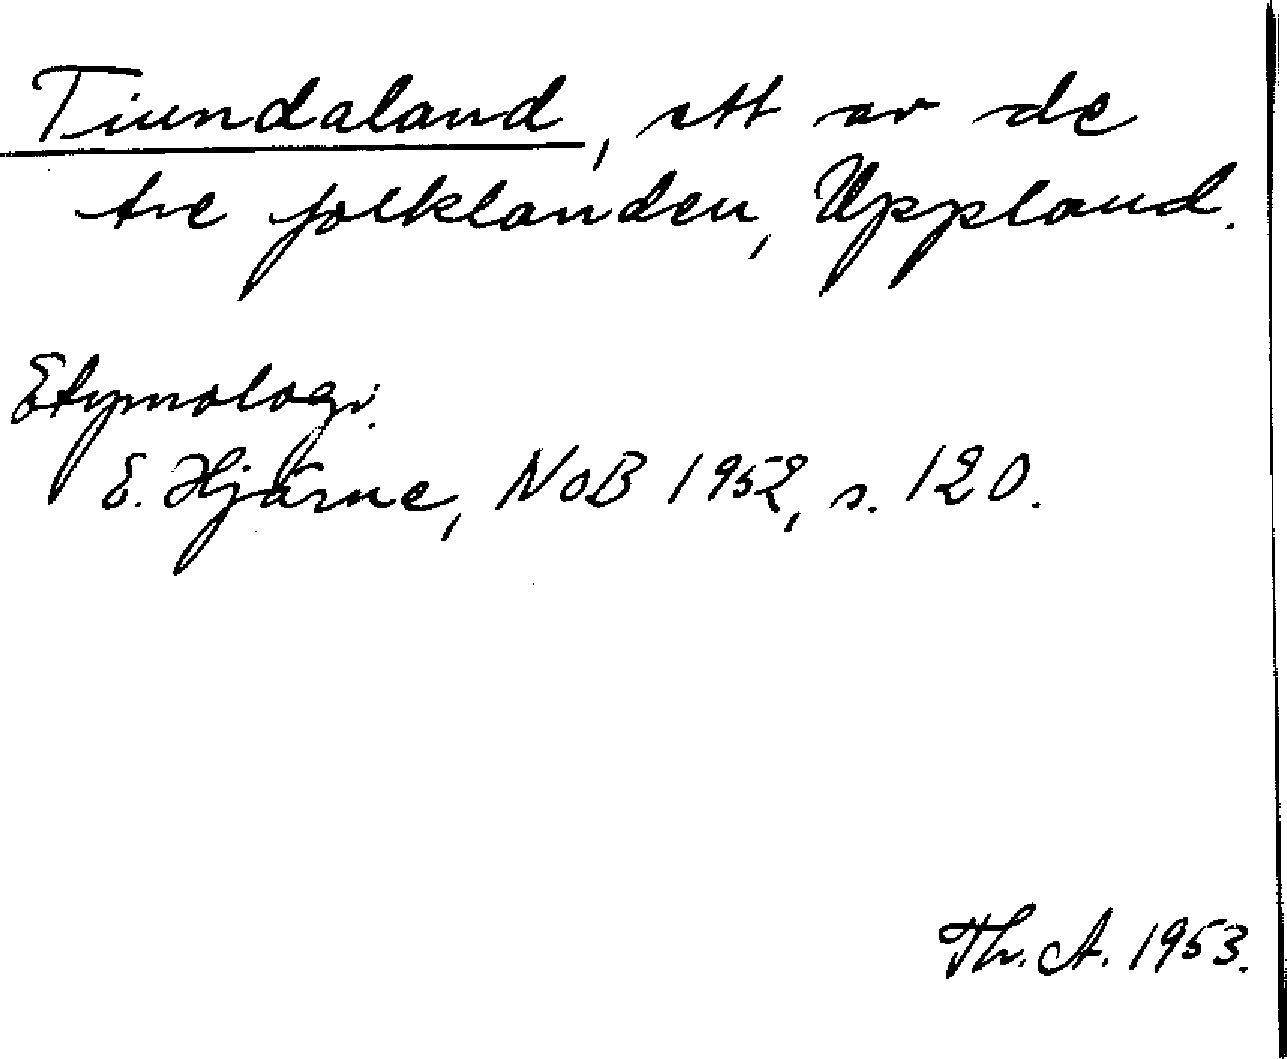 Tiundaland, ett av de
tre folklanden, Uppland.
Etymologi.
E. Hjärne, NoB 1952, s. 120.
Th. A. 1953.